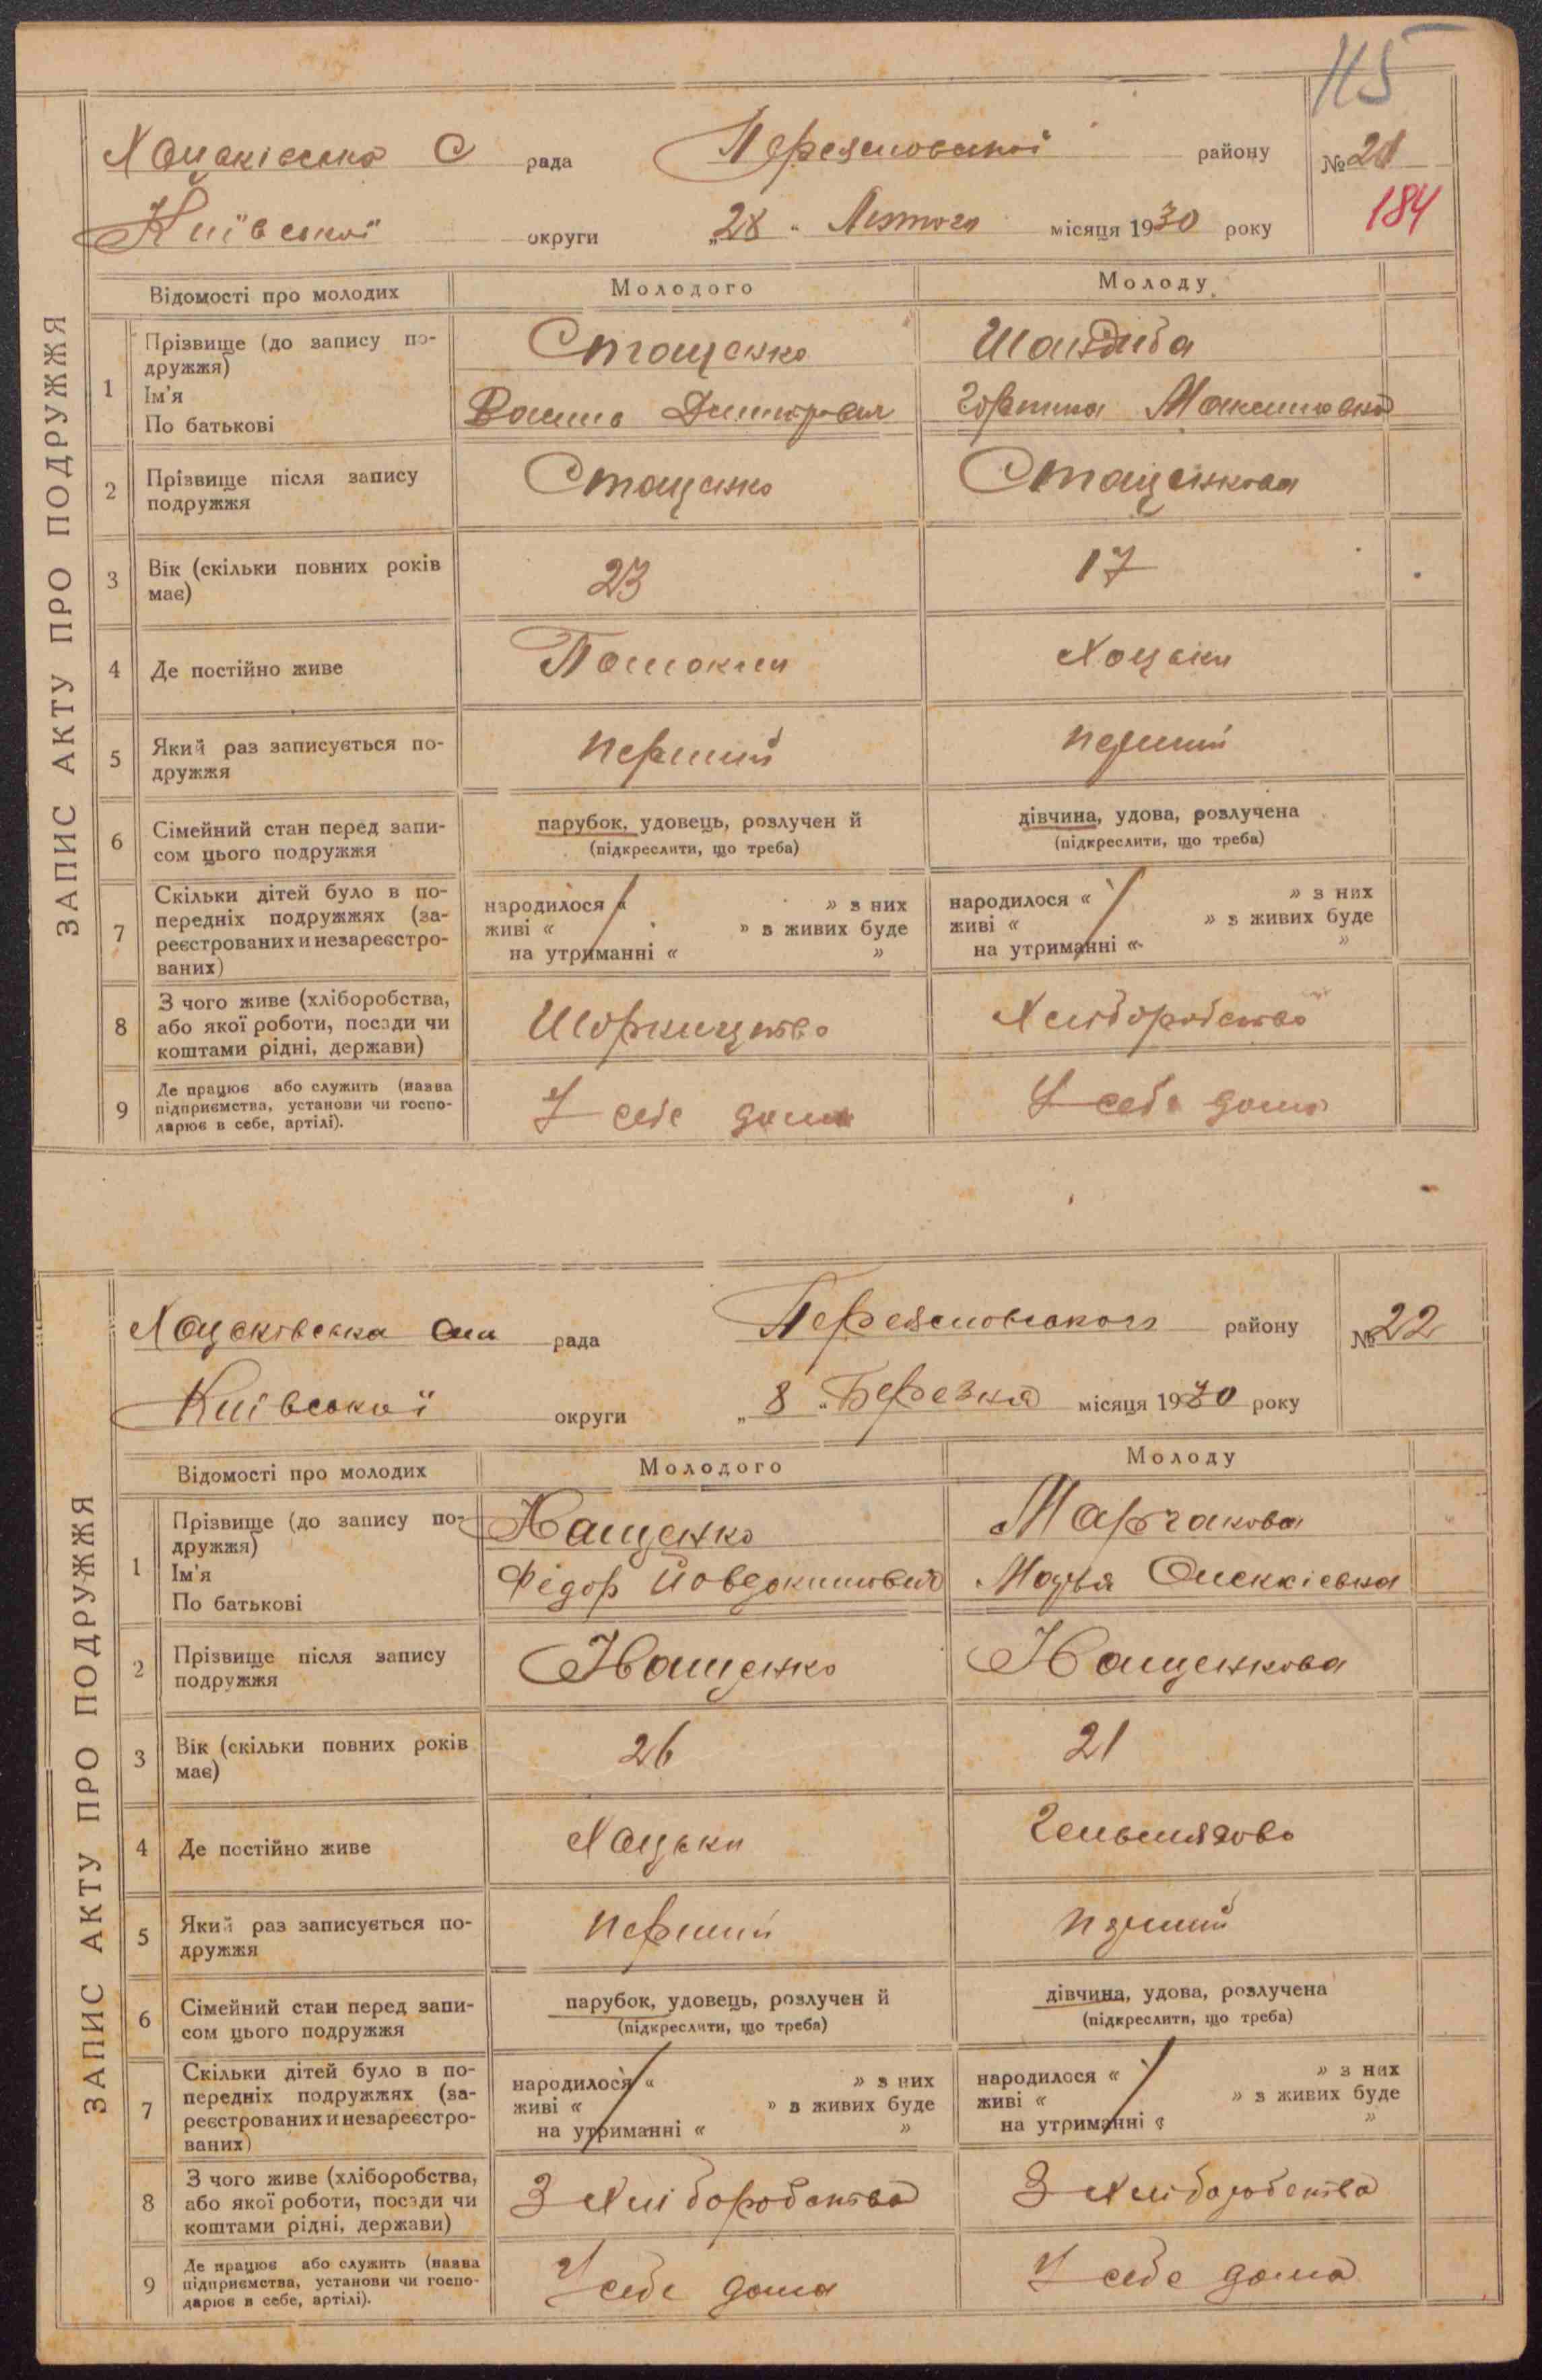 115
Хоцьківська С рада Переясловської району № 21
Київської округи „28" Лютого місяця 1930 року 184
ЗАПИС АКТУ ПРО ПОДРУЖЖЯ
Відомості про молодих Молодого Молоду
1 Прізвище (до запису по-
дружжя)
Ім'я
По батькові
Стащенко Шандиба
Дмитрович Горпина Максимовна
2 Прізвище після запису
подружжя
Стащенко Стащенкова
3 Вік (скільки повних років
має)
23 17
4 Де постійно живе
Помокли Хоцьки
5 Який раз записується по-
дружжя
перший перший
6 Сімейний стан перед запи-
сом цього подружжя
парубок, удовець, розлучен й дівчина, удова, розлучена
(підкреслити, що треба) (підкреслити, що треба)
7 Скільки дітей було в по-
передніх подружжях (за-
реєстрованих и незареєстро-
ваних)
народилося « » з них народилося « » з них
живі « » з живих буде живі « » з живих буде
на утриманні « » на утриманні « »
8 З чого живе (хліборобства,
або якої роботи, посади чи
коштами рідні, держави)
Хліборобство
9 Де працює або служить (назва
підприємства, установи чи госпо-
дарює в себе, артілі).
У себе дома У себе дома
Хоцьківська Сіл рада Переясловського району № 22
Київської округи „8" Березня місяця 1930 року
ЗАПИС АКТУ ПРО ПОДРУЖЖЯ
Відомості про молодих Молодого Молоду
1 Прізвище (до запису по-
дружжя)
Ім'я
По батькові
Нащенко Марчакова
Федор Йовдокимович Олекківна
2 Прізвище після запису
подружжя
Нащенко Нащенкова
3 Вік (скільки повних років
має)
26 21
4 Де постійно живе
Хоцьки Гельмязово
5 Який раз записується по-
дружжя
перший перший
6 Сімейний стан перед запи-
сом цього подружжя
парубок, удовець, розлучен й дівчина, удова, розлучена
(підкреслити, що треба) (підкреслити, що треба)
7 Скільки дітей було в по-
передніх подружжях (за-
реєстрованих и незареєстро-
ваних)
народилося « » з них народилося « » з них
живі « » з живих буде живі « » з живих буде
на утриманні « » на утриманні « »
8 З чого живе (хліборобства,
або якої роботи, посади чи
коштами рідні, держави)
З хліборобства З хліборобства
9 Де працює або служить (назва
підприємства, установи чи госпо-
дарює в себе, артілі).
У себе дома У себе дома